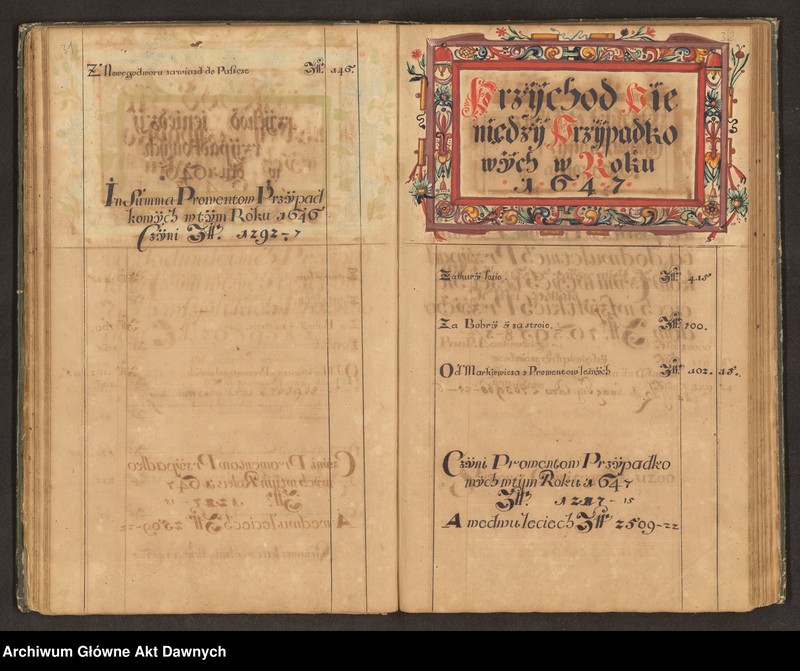 31
Z Nowegodworu zawiazd de Pastcze Złł. 146.
In Summa Promentow Przÿpad
kowÿch wtÿm Roku 1646
Czÿni Złł. 1292 - 7
32
Przÿchod Pie
niędzÿ Przÿpadko
wÿch w Roku
1647
Zaskurÿ Łosie. Złł. 415
Za Bobrÿ ÿ za stroie. Złł. 700.
Od Markiewicza z Promentow leśnÿch Złł. 102. 15.
Czÿni Promentow Przÿpadko
wÿch wtÿm Roku 1647
Złł. 1217 - 15
A wedwu leciech Złł 2509 - 22
Archiwum Główne Akt Dawnych